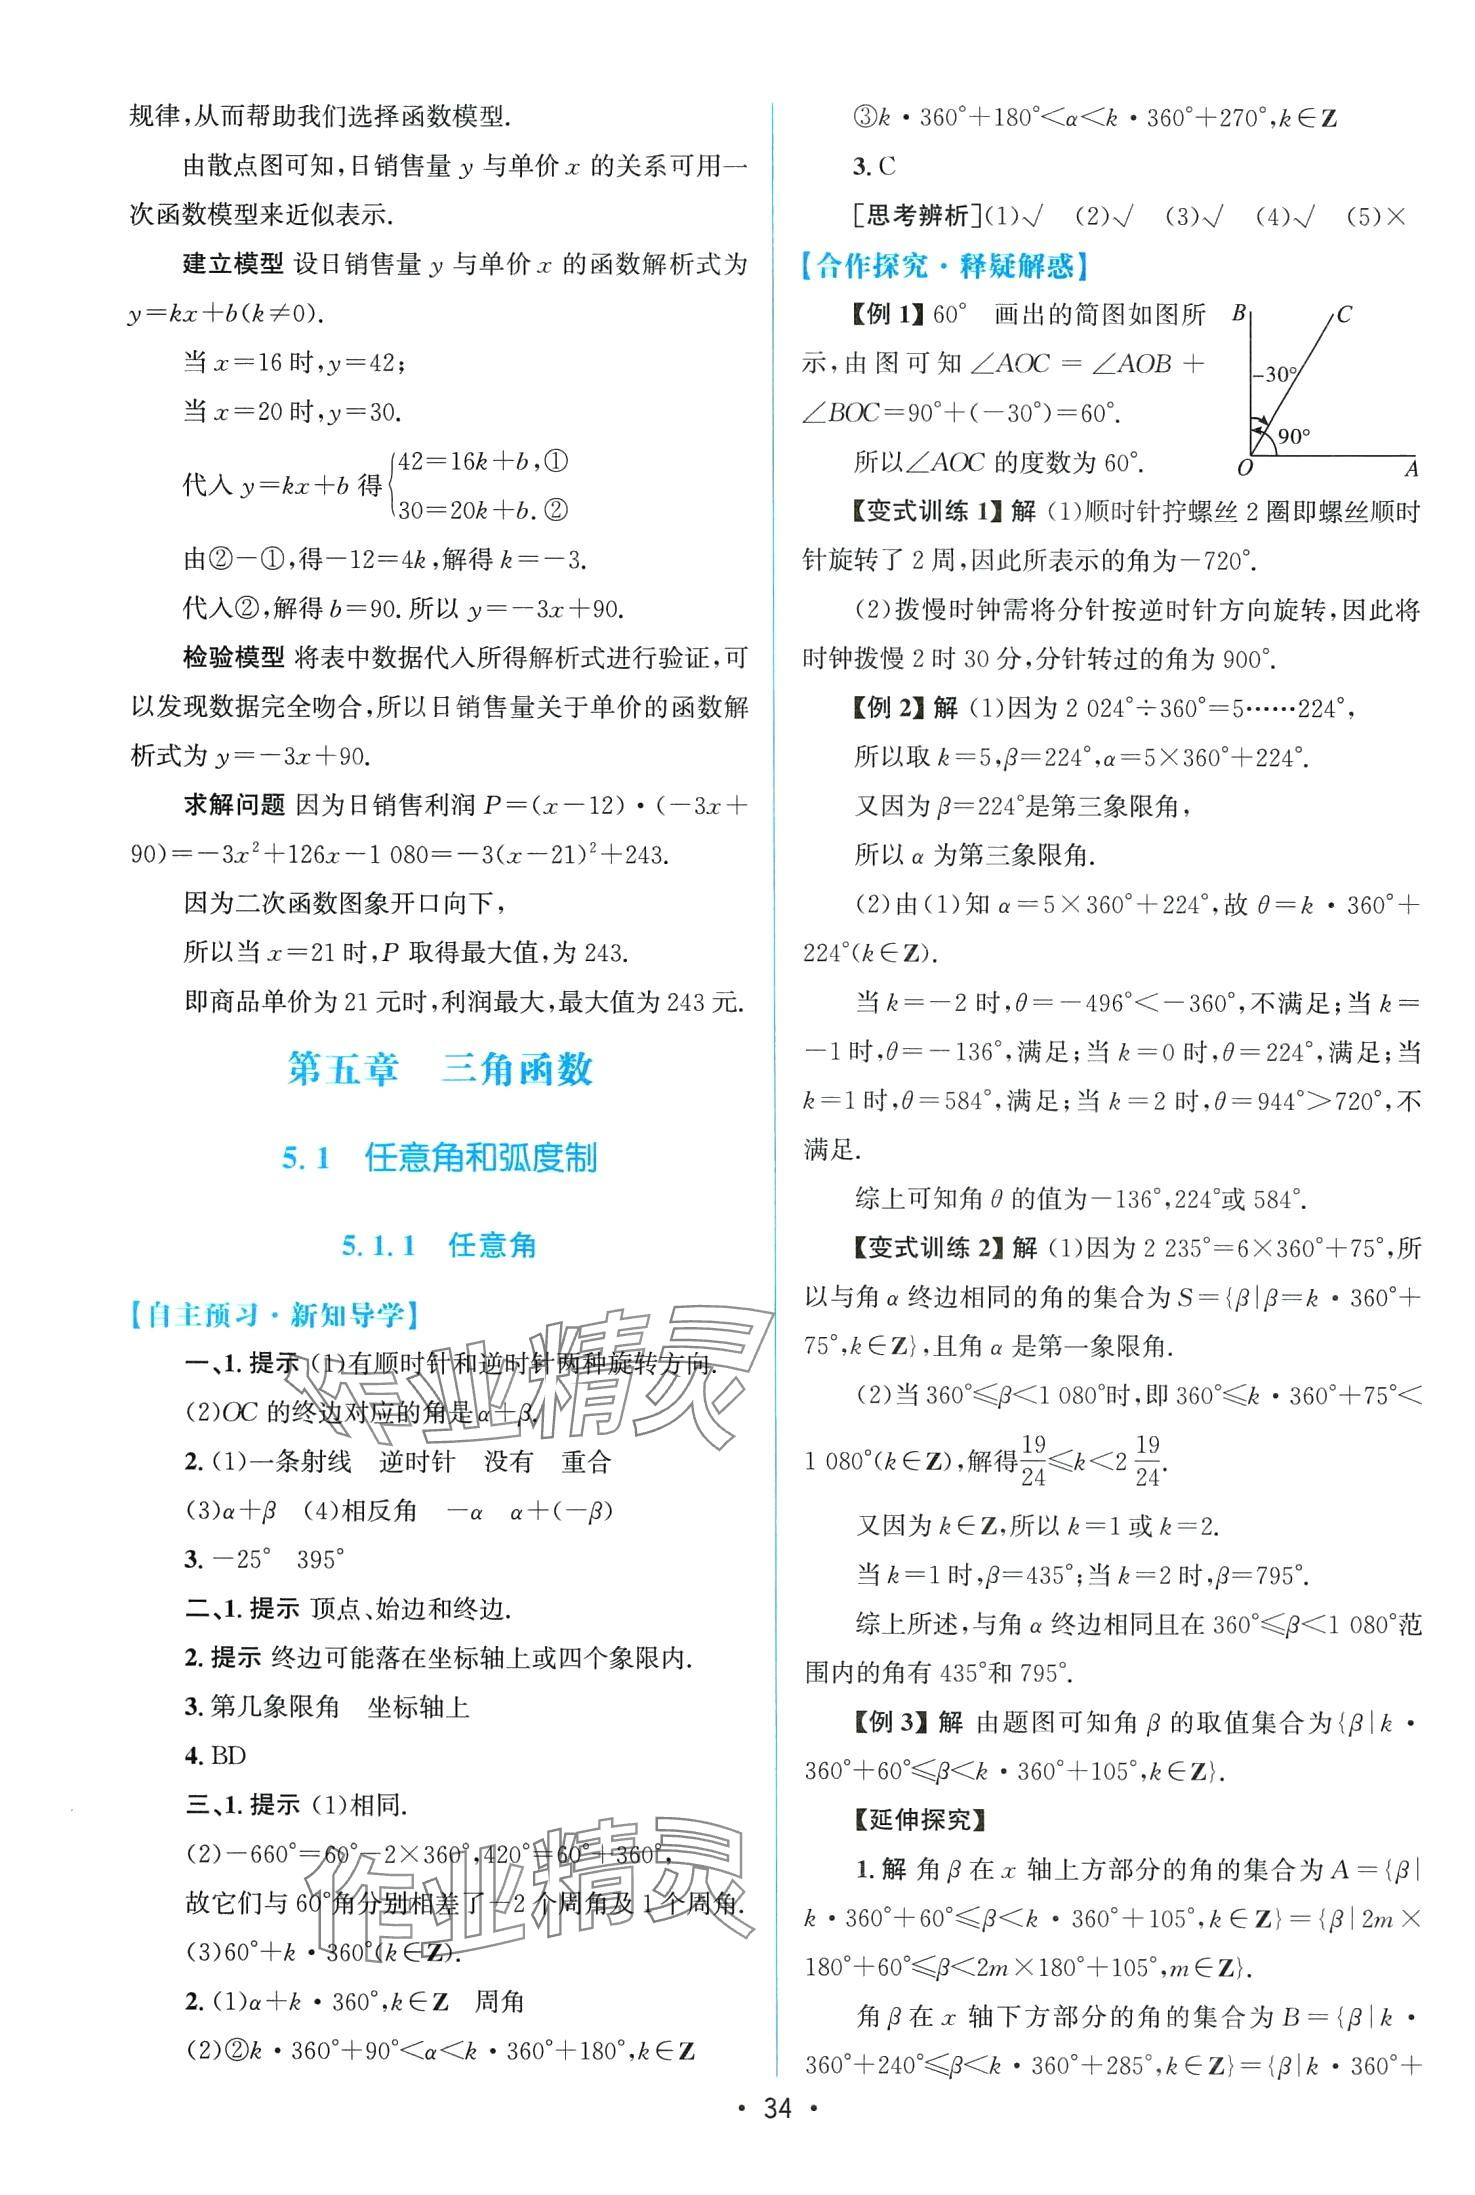 规律,从而帮助我们选择函数模型.
由散点图可知,日销售量 y 与单价 x 的关系可用一
次函数模型来近似表示.
建立模型 设日销售量 y 与单价 x 的函数解析式为
y=kx+b(k≠0).
当 x=16 时,y=42;
当 x=20 时,y=30.
代入 y=kx+b 得{42=16k+b,①
30=20k+b.②
由②-①,得-12=4k,解得 k=-3.
代入②,解得 b=90.所以 y=-3x+90.
检验模型 将表中数据代入所得解析式进行验证,可
以发现数据完全吻合,所以日销售量关于单价的函数解
析式为 y=-3x+90.
求解问题 因为日销售利润 P=(x-12)·(-3x+
90)=-3x²+126x-1 080=-3(x-21)²+243.
因为二次函数图象开口向下,
所以当 x=21 时,P 取得最大值,为 243.
即商品单价为 21 元时,利润最大,最大值为 243 元.
第五章 三角函数
5.1 任意角和弧度制
5.1.1 任意角
【自主预习·新知导学】
一、1.提示 (1)有顺时针和逆时针两种旋转方向.
(2)OC 的终边对应的角是α+β.
2.(1)一条射线 逆时针 没有 重合
(3)α+β (4)相反角 -α α+(-β)
3.-25° 395°
二、1.提示 顶点、始边和终边.
2.提示 终边可能落在坐标轴上或四个象限内.
3.第几象限角 坐标轴上
4.BD
三、1.提示 (1)相同.
(2)-660°=60°-2×360°,420°=60°+360°,
故它们与 60°角分别相差了-2 个周角及 1 个周角.
(3)60°+k·360°(k∈Z).
2.(1)α+k·360°,k∈Z 周角
(2)②k·360°+90°<α<k·360°+180°,k∈Z
③k·360°+180°<α<k·360°+270°,k∈Z
3.C
[思考辨析](1)√ (2)√ (3)√ (4)√ (5)×
【合作探究·释疑解惑】
【例 1】60° 画出的简图如图所
示,由图可知∠AOC=∠AOB+
∠BOC=90°+(-30°)=60°.
所以∠AOC 的度数为 60°.
B
C
-30°
90°
O
A
【变式训练 1】解 (1)顺时针拧螺丝 2 圈即螺丝顺时
针旋转了 2 周,因此所表示的角为-720°.
(2)拨慢时钟需将分针按逆时针方向旋转,因此将
时钟拨慢 2 时 30 分,分针转过的角为 900°.
【例 2】解 (1)因为 2 024°÷360°=5……224°,
所以取 k=5,β=224°,α=5×360°+224°.
又因为 β=224°是第三象限角,
所以 α 为第三象限角.
(2)由(1)知 α=5×360°+224°,故 θ=k·360°+
224°(k∈Z).
当 k=-2 时,θ=-496°<-360°,不满足;当 k=
-1 时,θ=-136°,满足;当 k=0 时,θ=224°,满足;当
k=1 时,θ=584°,满足;当 k=2 时,θ=944°>720°,不
满足.
综上可知角 θ 的值为-136°,224°或 584°.
【变式训练 2】解 (1)因为 2 235°=6×360°+75°,所
以与角 α 终边相同的角的集合为 S={β|β=k·360°+
75°,k∈Z},且角 α 是第一象限角.
(2)当 360°≤β<1 080°时,即 360°≤k·360°+75°<
1 080°(k∈Z),解得19/24≤k<2 19/24.
又因为 k∈Z,所以 k=1 或 k=2.
当 k=1 时,β=435°;当 k=2 时,β=795°.
综上所述,与角 α 终边相同且在 360°≤β<1 080°范
围内的角有 435°和 795°.
【例 3】解 由题图可知角 β 的取值集合为{β|k·
360°+60°≤β<k·360°+105°,k∈Z}.
【延伸探究】
1.解 角 β 在 x 轴上方部分的角的集合为 A={β|
k·360°+60°≤β<k·360°+105°,k∈Z}={β|2m×
180°+60°≤β<2m×180°+105°,m∈Z}.
角 β 在 x 轴下方部分的角的集合为 B={β|k·
360°+240°≤β<k·360°+285°,k∈Z}={β|k·360°+
·34·
作业精灵
作业精灵